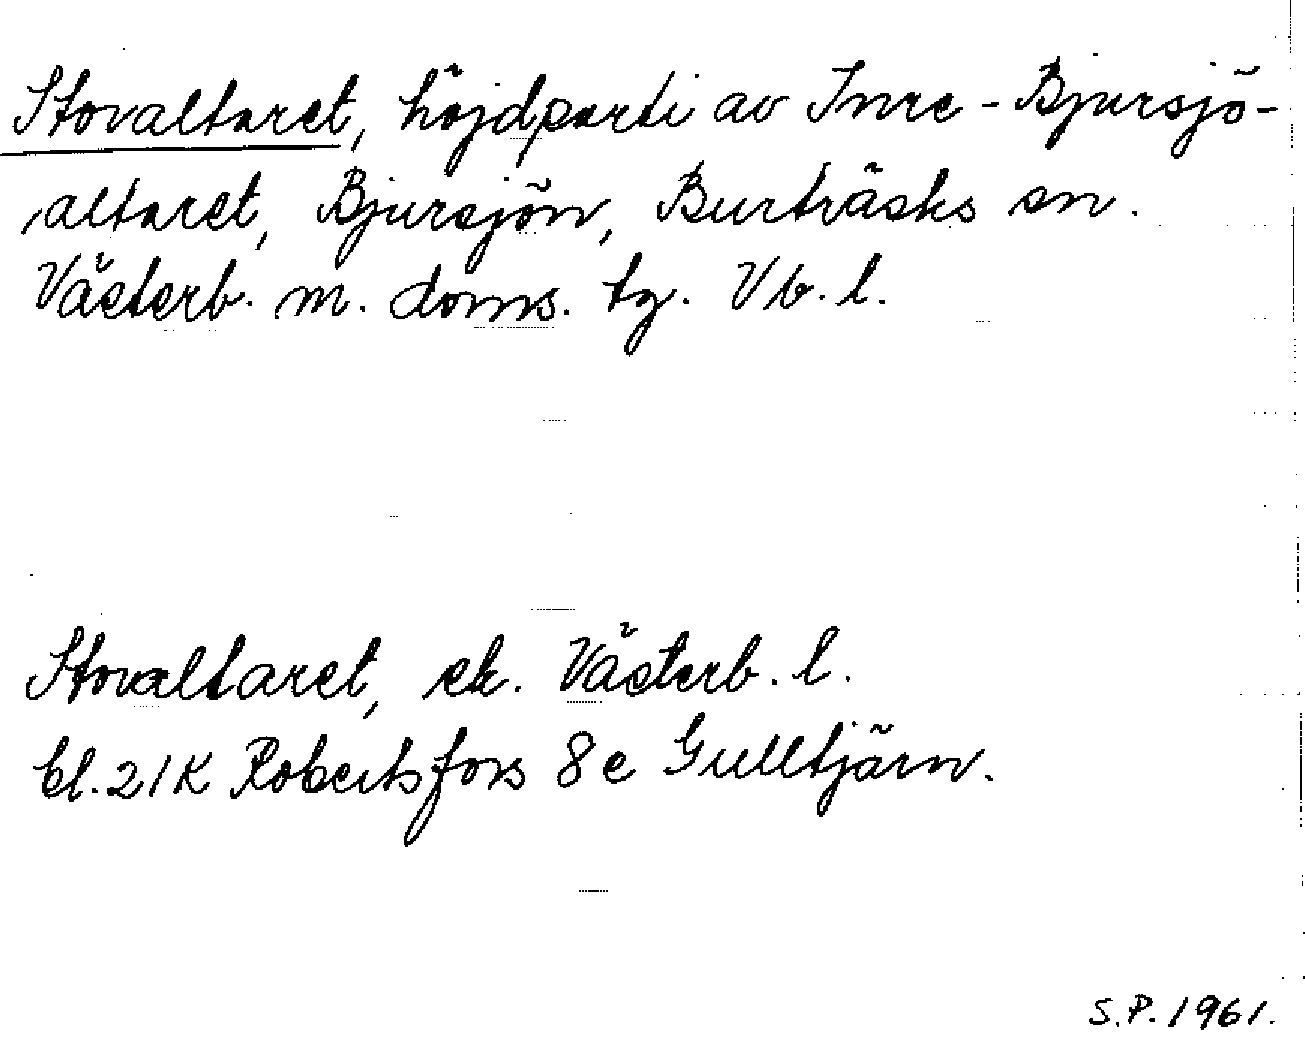 Storaltaret, höjdparti av Inre-Bjursjö-
altaret, Bjursjön, Burträsks sn.
Västerb. m. doms. tg. Vb. l.
Storaltaret, ek. Västerb. l.
bl. 21K Robertsfors 8e Gulltjärn.
S.P. 1961.